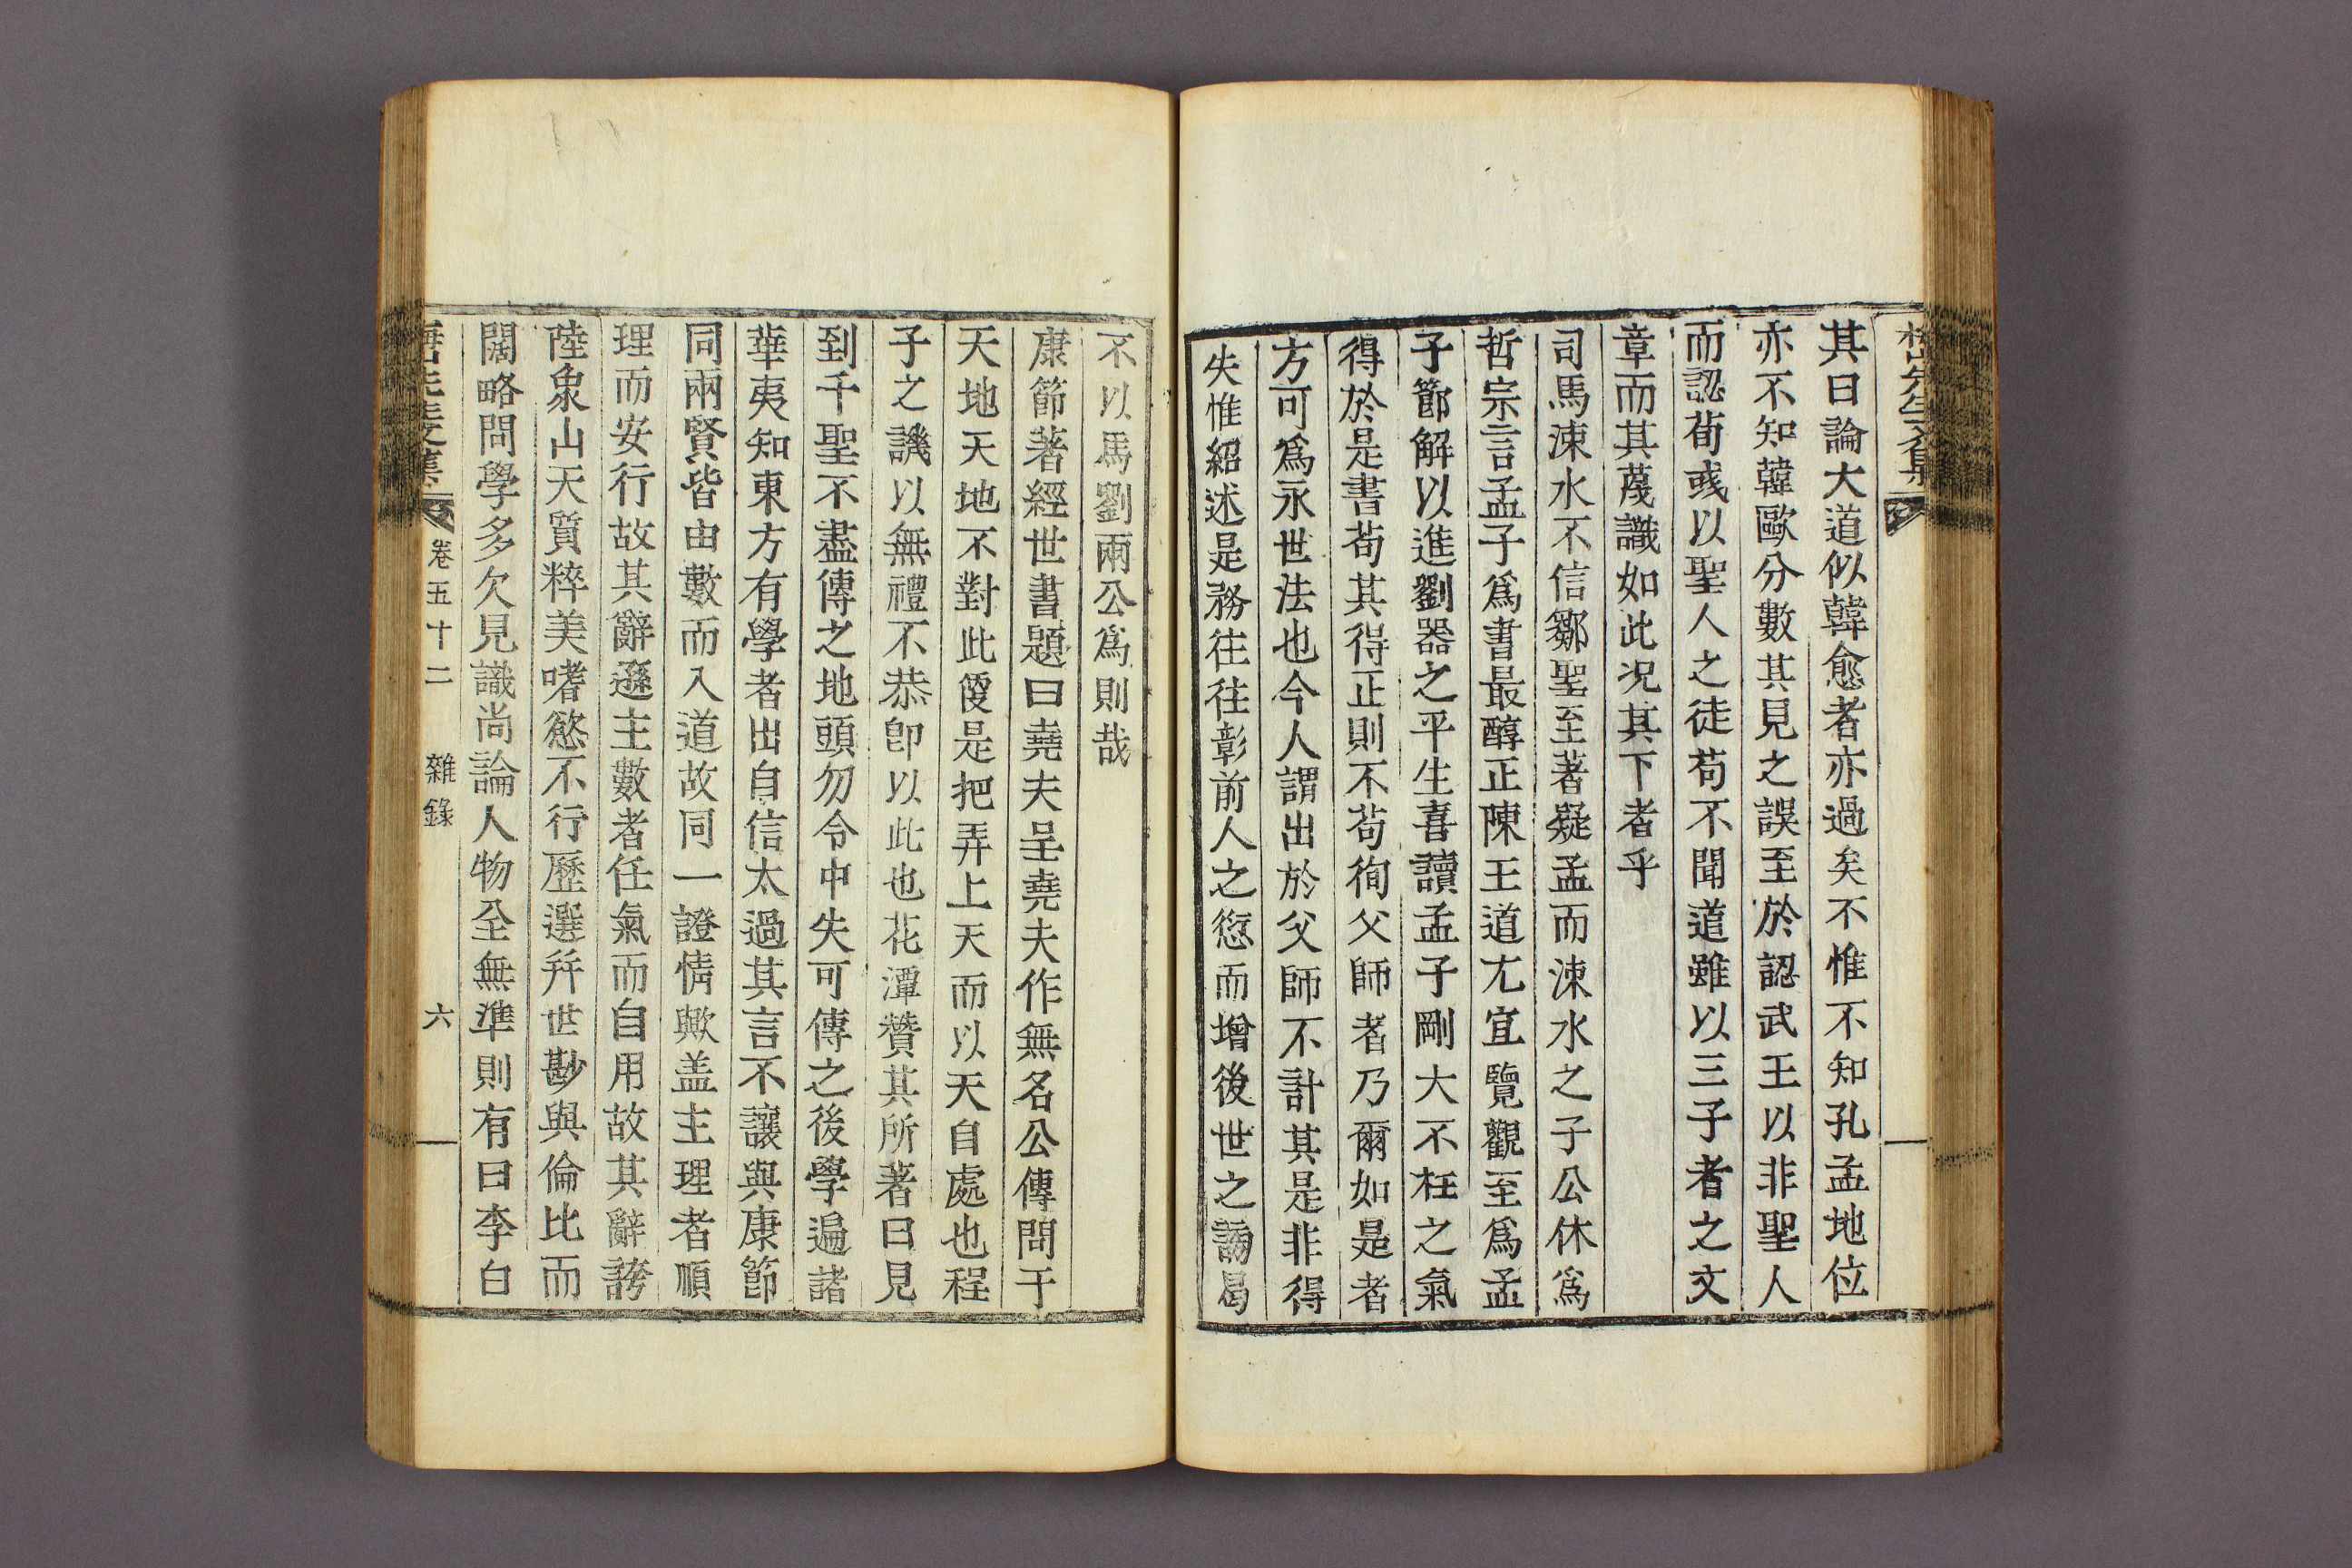 其曰論大道似韓愈者亦過矣不惟不知孔孟地位
亦不知韓歐分數其見之誤至於認武王以非聖人
而認荀彧以聖人之徒苟不聞道雖以三子者之文
章而其蔑識如此况其下者乎
司馬涑水不信鄒聖至著疑孟而涑水之子公休爲
哲宗言孟子爲書最醇正陳王道尤宜覽觀至爲孟
子節解以進劉器之平生喜讀孟子剛大不枉之氣
得於是書苟其得正則不苟徇父師者乃爾如是者
方可爲永世法也今人謂出於父師不計其是非得
失惟紹述是務往往彰前人之愆而增後世之譏曷
不以馬劉兩公爲則哉
康節著經世書題曰堯夫呈堯夫作無名公傳問于
天地天地不對此儘是把弄上天而以天自處也程
子之譏以無禮不恭卽以此也花潭贊其所著曰見
到千聖不盡傳之地頭勿令中失可傳之後學遍諸
華夷知東方有學者出自信太過其言不讓與康節
同兩賢皆由數而入道故同一證情歟盖主理者順
理而安行故其辭遜主數者任氣而自用故其辭誇
陸象山天質粹美嗜慾不行歷選幷世尠與倫比而
闊略問學多欠見識尚論人物全無準則有曰李白
梅山先生文集 卷五十二 雜錄 六